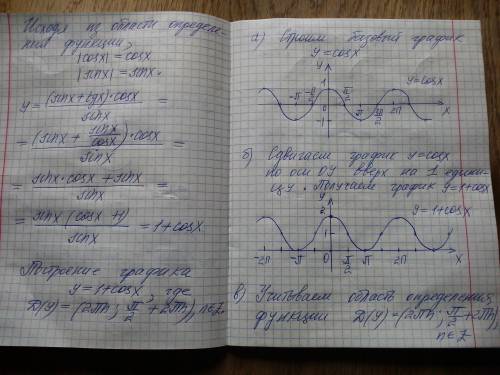 Исходя из области определе-
ния функции,
|cosx| = cosx
|sinx| = sinx.
y = (sinx + tgx)·cosx / sinx =
= (sinx + sinx/cosx)·cosx / sinx =
= sinx·cosx + sinx / sinx =
= sinx (cosx + 1) / sinx = 1 + cosx.
Построение графика
y = 1 + cosx, где
D(y) = (2πn; π/2 + 2πn), n∈Z.
а) Строим базовый график
y = cosx
y
1
y = cosx
-π -π/2 0 π/2 π 3π/2 2π x
-1
б) Сдвигаем график y = cosx
по оси OY вверх на 1 едини-
цу. Получаем график y = 1 + cosx
y
2
y = 1 + cosx
1
-2π -π 0 π/2 π 2π x
в) Учитываем область определения
функции D(y) = (2πn; π/2 + 2πn)
n∈Z